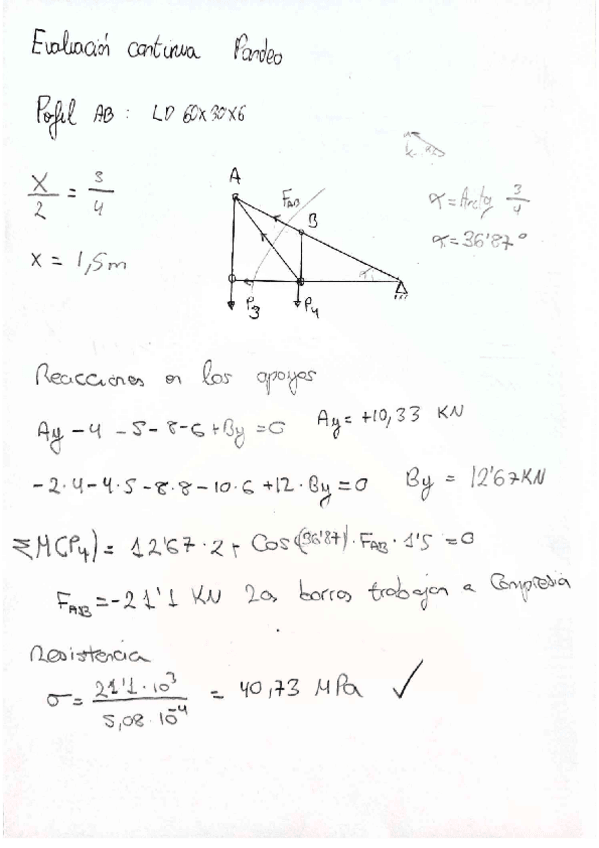 Evaluación continua Pandeo
Perfil AB : LD 60x30x6
x/2 = 3/4
x = 1,5m
A
F_AB
B
α
P3
P4
α = Arctg 3/4
α = 36'87°
Reacciones en los apoyos
Ay - 4 - 5 - 8 - 6 + By = 0 Ay = +10,33 KN
-2·4 - 4·5 - 8·8 - 10·6 + 12·By = 0 By = 12'67KN
ΣM(P4) = 12'67·2 + Cos(36'87)·F_AB·1'5 = 0
F_AB = -21'1 KN 2as barras trabajan a Compresia
Resistencia
σ = 21'1·10³ / 5,08·10⁻⁴ = 40,73 MPa ✓